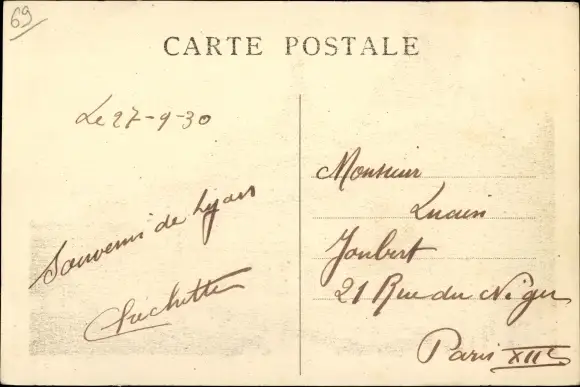 69
CARTE POSTALE
Le 27-9-30
Souvenir de Lyon
Monsieur
Lucien
Joubert
21 Rue du Niger
Paris XIIe